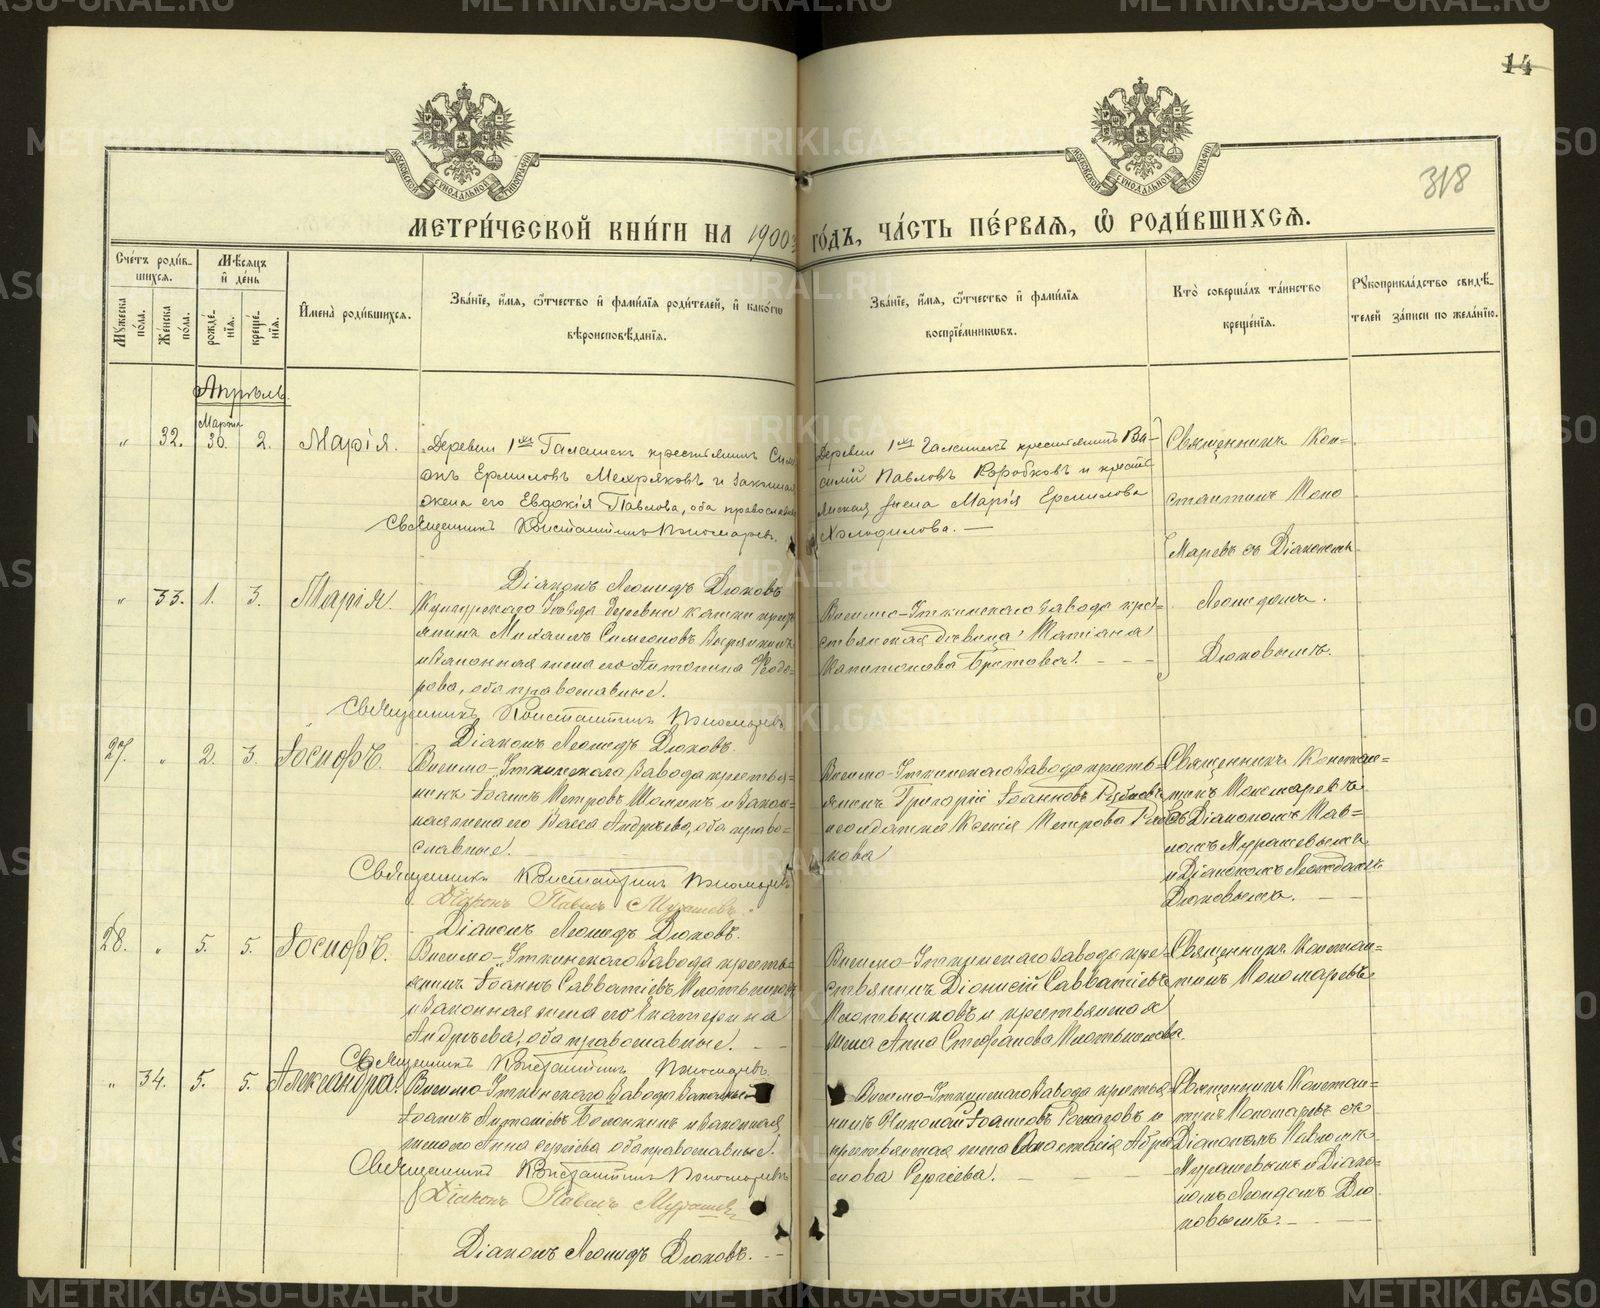 14
318
МЕТРИЧЕСКОЙ КНИГИ НА 1900 ГОДЪ, ЧАСТЬ ПЕРВАЯ, Ѽ РОДИВШИХСЯ.
Счетъ родившихся.
Мужеска пола.
Женска пола.
Мѣсяцъ и день
рожденія.
крещенія.
Имена родившихся.
Званіе, имя, ѿчество и фамилія родителей, и какогѡ
вѣроисповѣданія.
Званіе, имя, ѿчество и фамилія
воспріемникѡвъ.
Кто совершалъ таинство
крещенія.
Рукоприкладство свидѣтелей записи по желанію.
Апрѣль
„ 32. Марта 30. 2. Марія.
Деревни 1й Галашекъ крестьянинъ Симеонъ
Ермиловъ Мехряковъ и законная
жена его Евдокія Павлова, оба православные
Священникъ Константинъ Пономаревъ.
Діаконъ Леонидъ Дюковъ
Деревни 1й Галашекъ крестьянинъ Василій
Павловъ Коробковъ и крестьянская
жена Марія Ермилова
Холодилова.
Священникъ Константинъ
Пономаревъ съ Діакономъ
Леонидомъ
Дюковымъ.
„ 33. 1. 3. Марія.
Кунгурскаго Уѣзда деревни
Михаилъ Симеоновъ
и законная жена его Антонина Ѳеодорова,
оба православные.
Священникъ Константинъ Пономаревъ
Діаконъ Леонидъ Дюковъ.
Висимо-Уткинскаго завода крестьянская
дѣвица Татіана
Капитонова
27. „ 2. 3. Іосифъ.
Висимо-Уткинскаго завода крестьянинъ
Іоаннъ Петровъ и законная
жена его Васса Андреева, оба православные.
Священникъ Константинъ Пономаревъ
Діаконъ Павелъ Мурашевъ.
Діаконъ Леонидъ Дюковъ.
Висимо-Уткинскаго завода крестьянинъ
Григорій Іоанновъ
и солдатка Ксенія Петрова
Священникъ Константинъ
Пономаревъ
съ Діакономъ Павломъ
Мурашевымъ
и Діакономъ Леонидомъ
Дюковымъ.
28. „ 5. 5. Іосифъ.
Висимо-Уткинскаго завода крестьянинъ
Іоаннъ Савватіевъ Плотниковъ
и законная жена его Екатерина
Андреева, оба православные.
Священникъ Константинъ Пономаревъ.
Висимо-Уткинскаго завода крестьянинъ
Діонисій Савватіевъ
Плотниковъ и крестьянская
жена Анна Стефанова Плотникова.
Священникъ Константинъ
Пономаревъ
„ 34. 5. 5. Александра.
Висимо-Уткинскаго завода
Іоаннъ Антоніевъ и законная
жена его Анна Сергіева оба православные.
Священникъ Константинъ Пономаревъ
Діаконъ Павелъ Мурашевъ
Діаконъ Леонидъ Дюковъ.
Висимо-Уткинскаго завода крестьянинъ
Николай Іоанновъ и
крестьянская жена Анастасія
Сергіева.
Священникъ Константинъ
Пономаревъ съ
Діакономъ Павломъ
Мурашевымъ и Діакономъ
Леонидомъ Дюковымъ.
METRIKI.GASO-URAL.RU